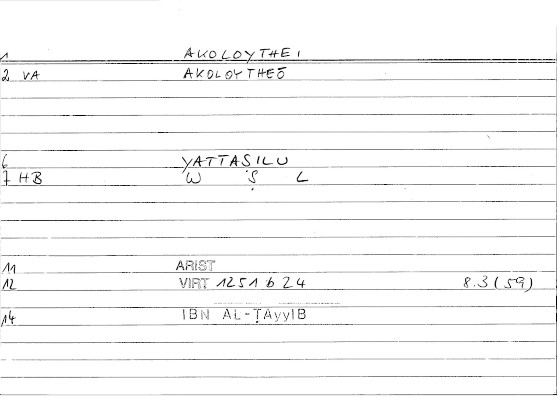 1 AKOLOYTHEI
2 VA AKOLOYTHEŌ
6 YATTASILU
7 HB W Ṣ L
11 ARIST
12 VIRT 1251 b 24 8.3 (59)
14 IBN AL-ṬAyyIB